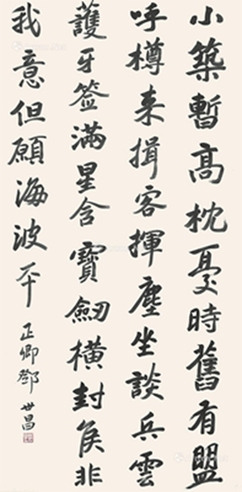 小築暫高枕憂時舊有盟
呼樽来揖客揮麈坐談兵雲
護牙签滿星含寶劍橫封侯非
我意但願海波平
正卿鄧世昌